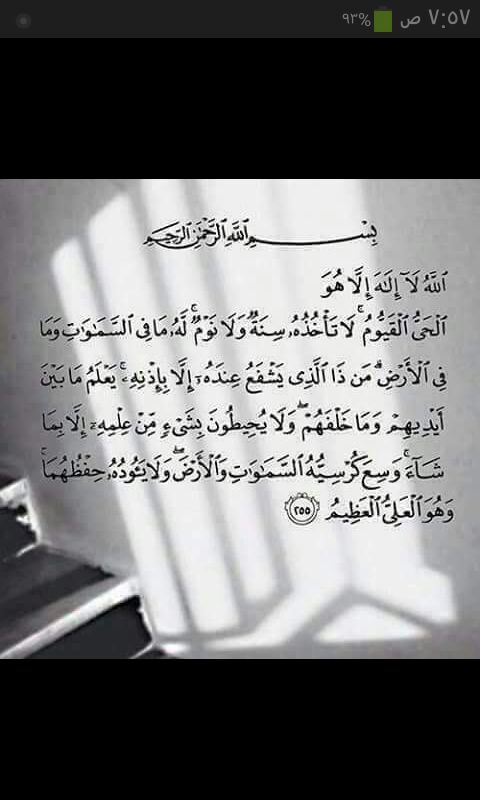 ٧:٥٧ ص ٩٣%
بِسْمِ اللَّهِ الرَّحْمَٰنِ الرَّحِيمِ
اللَّهُ لَآ إِلَٰهَ إِلَّا هُوَ
الْحَىُّ الْقَيُّومُ ۚ لَا تَأْخُذُهُۥ سِنَةٌ وَلَا نَوْمٌ ۚ لَّهُۥ مَا فِى السَّمَٰوَٰتِ وَمَا
فِى الْأَرْضِ ۗ مَن ذَا الَّذِى يَشْفَعُ عِندَهُۥٓ إِلَّا بِإِذْنِهِۦ ۚ يَعْلَمُ مَا بَيْنَ
أَيْدِيهِمْ وَمَا خَلْفَهُمْ ۖ وَلَا يُحِيطُونَ بِشَىْءٍ مِّنْ عِلْمِهِۦٓ إِلَّا بِمَا
شَآءَ ۚ وَسِعَ كُرْسِيُّهُ السَّمَٰوَٰتِ وَالْأَرْضَ ۖ وَلَا يَـُٔودُهُۥ حِفْظُهُمَا ۚ
وَهُوَ الْعَلِىُّ الْعَظِيمُ ٢٥٥